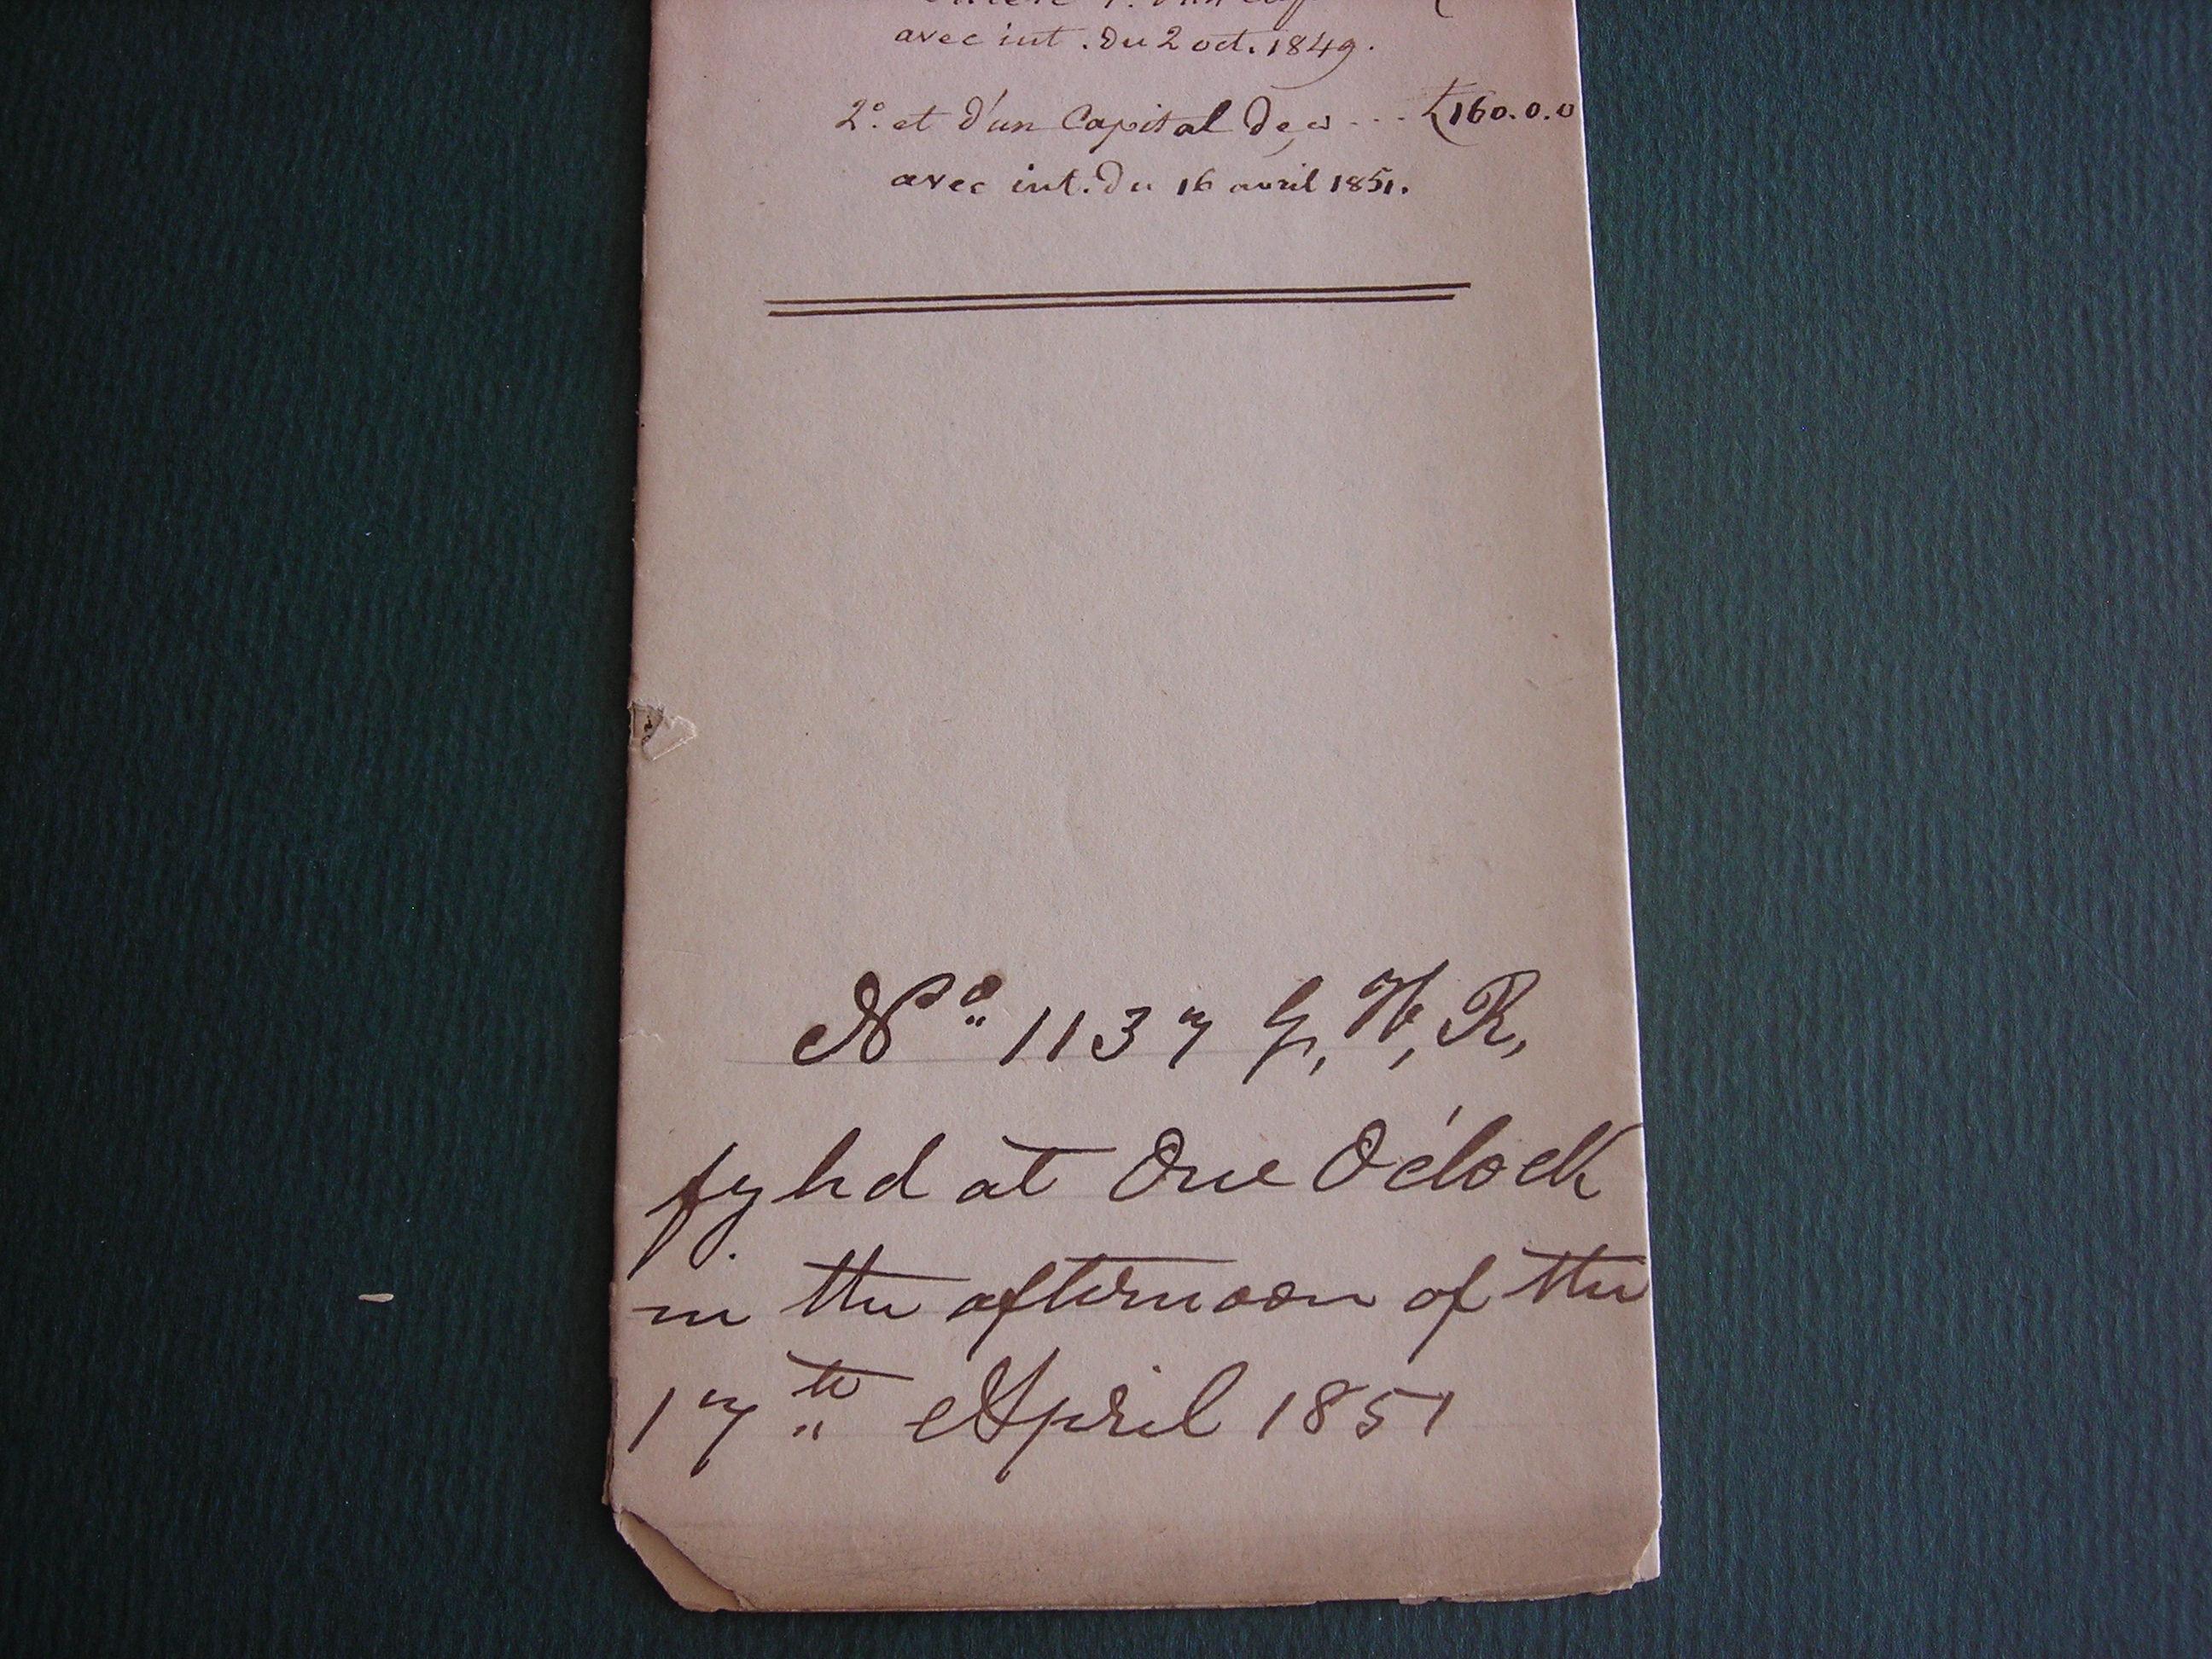 avec int. du 2 oct. 1849.
2º. et d'un Capital de ... £160.0.0
avec int. du 16 avril 1851.
Nº 1137 G, W, R,
fyled at One O'clock
in the afternoon of the
17th April 1851